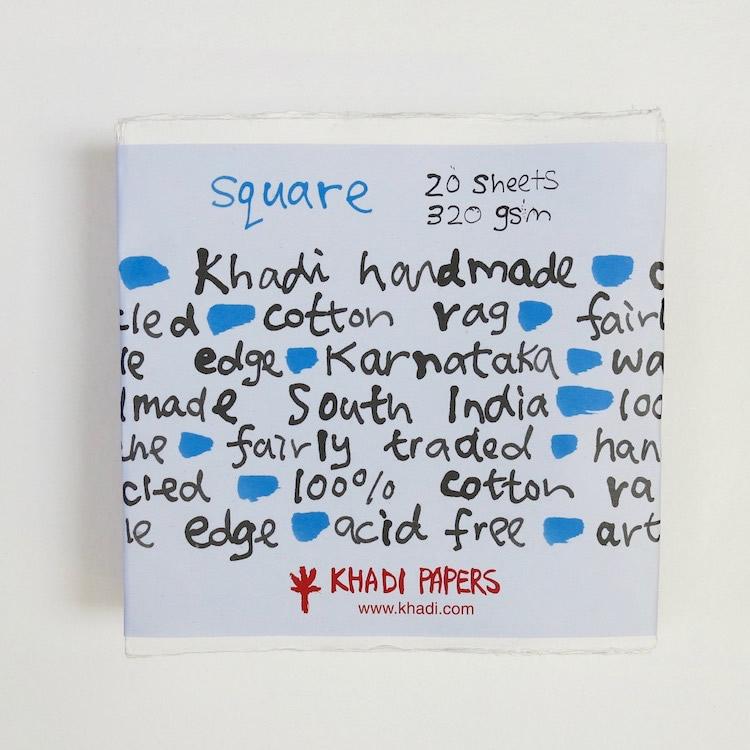 square
20 sheets
320 gsm
Khadi handmade c
cled cotton rag fairl
e edge Karnataka wa
made South India 100
he fairly traded han
cled 100% cotton ra
le edge acid free art
KHADI PAPERS
www.khadi.com